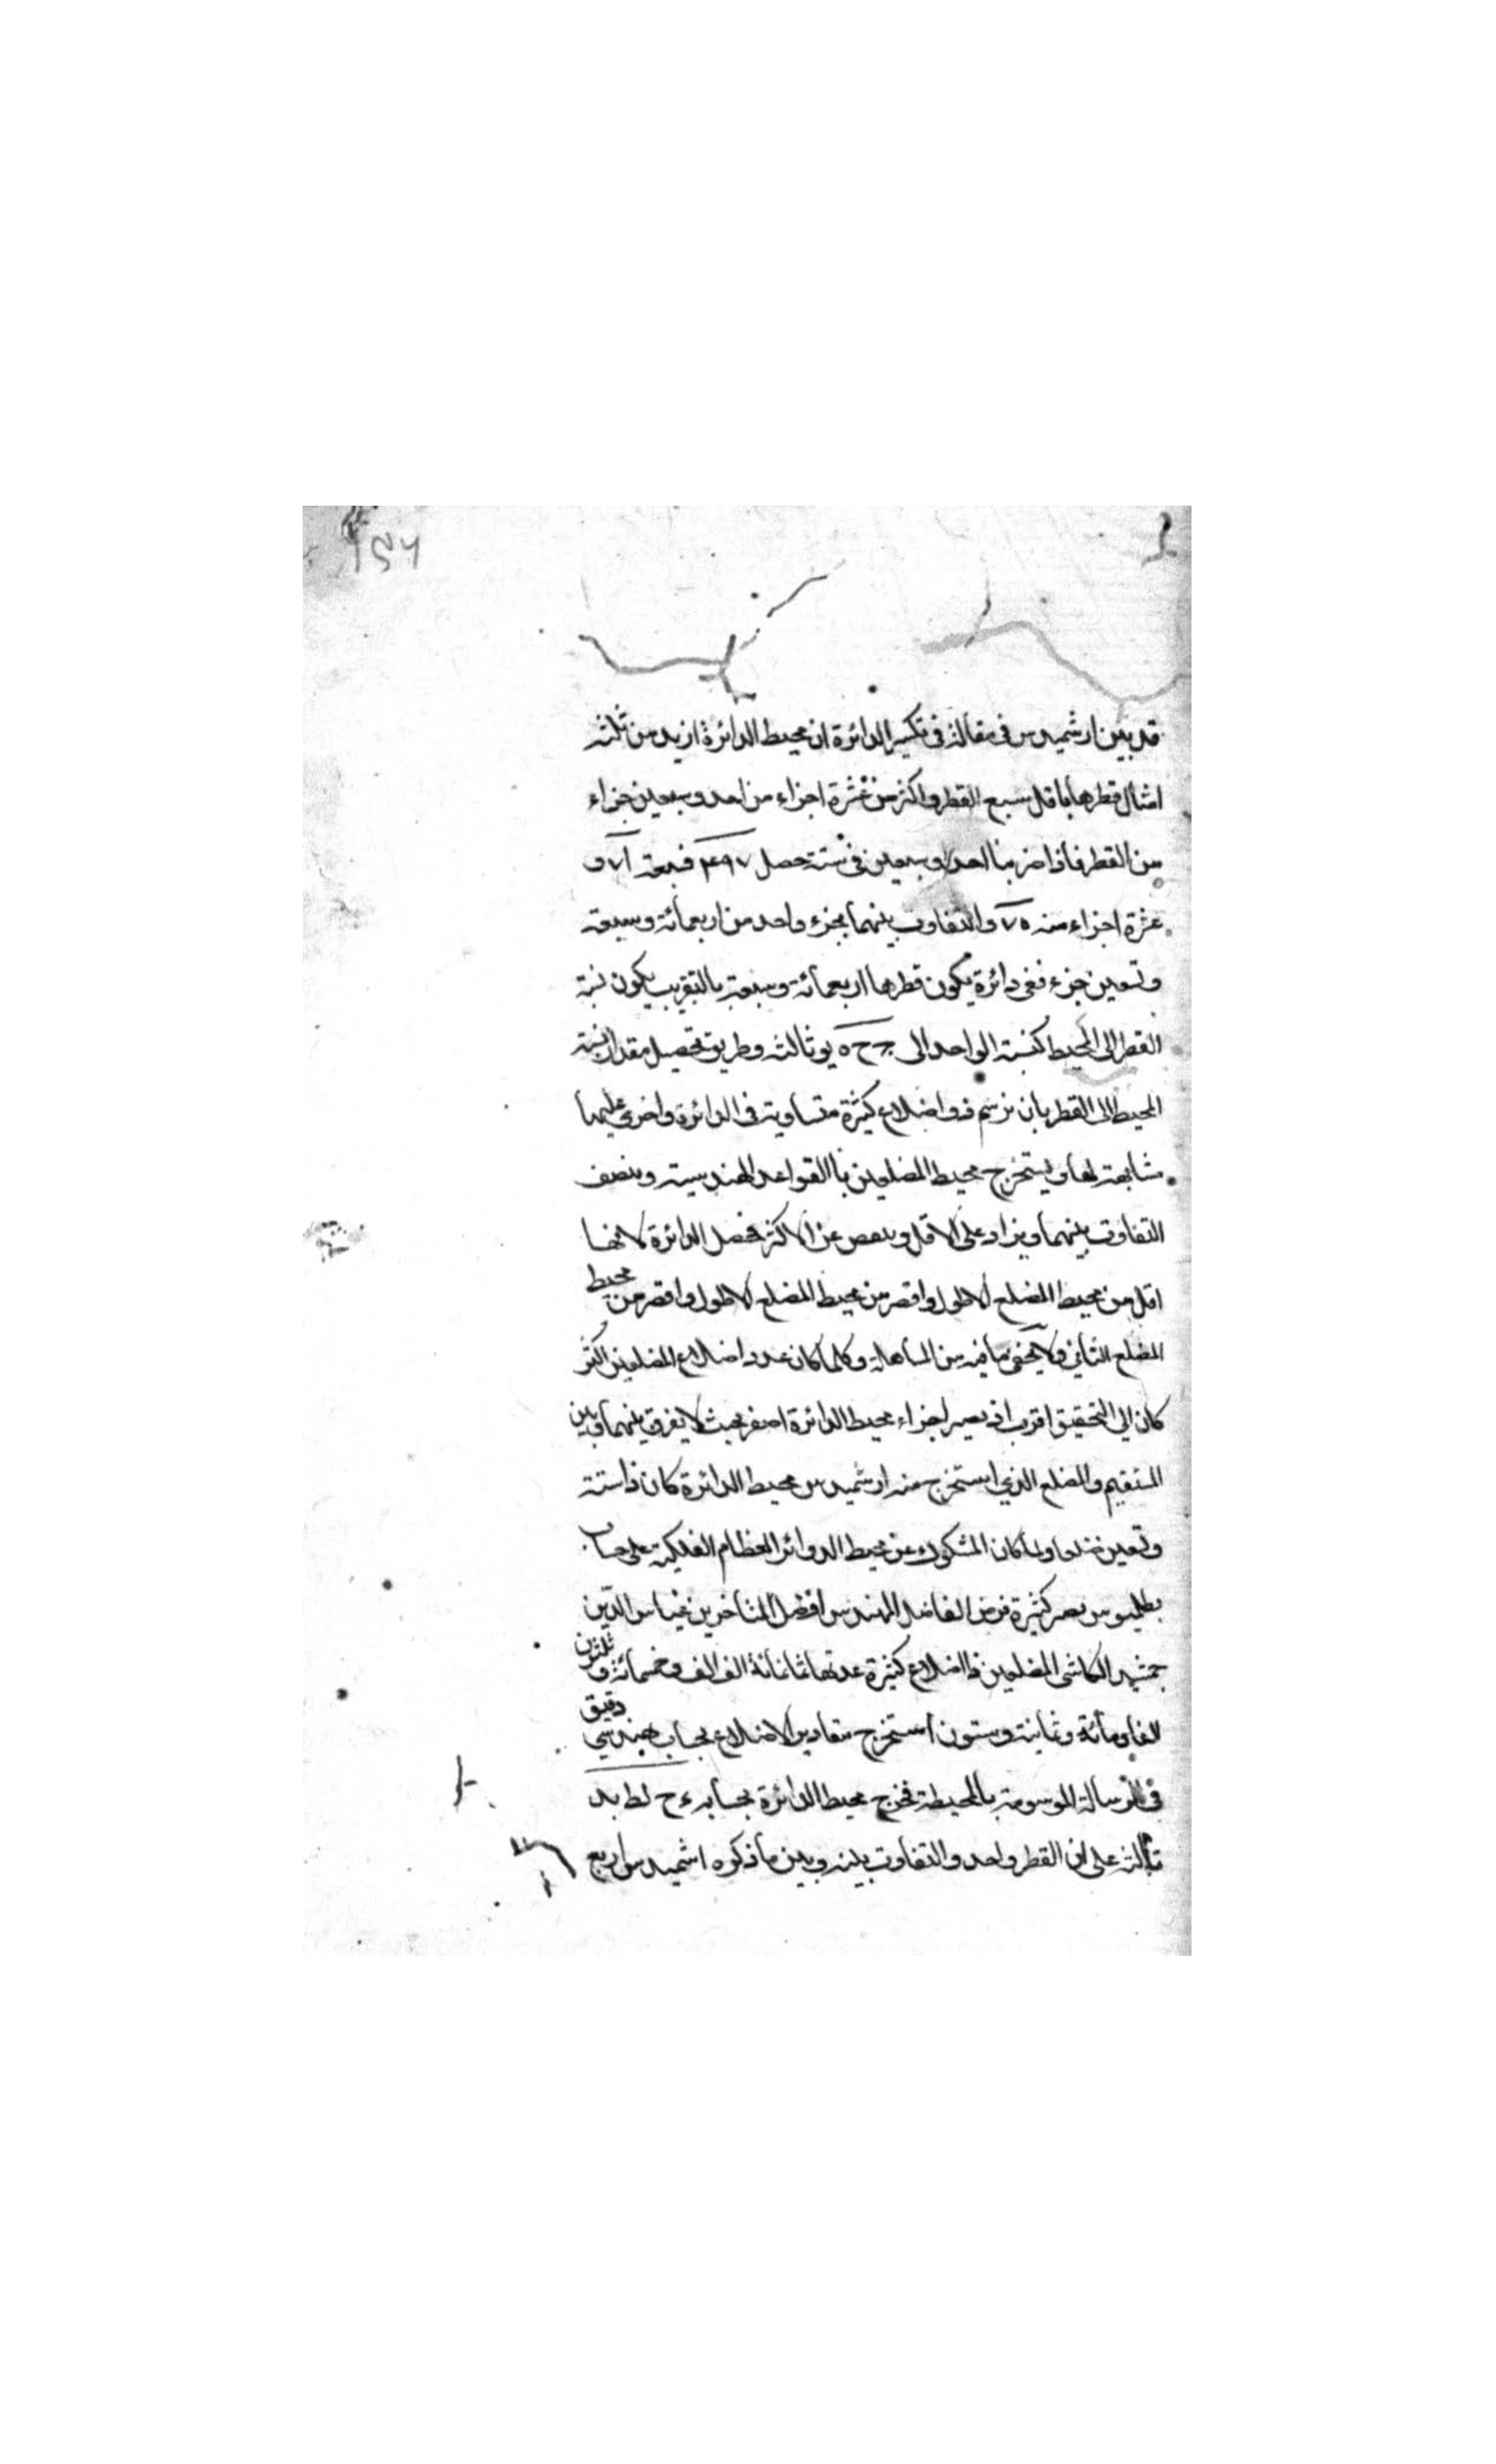 ١٥٦
قد بين ارشميدس في مقالة في تكسير الدائرة ان محيط الدائرة ازيد من ثلثة
امثال قطرها باقل سبع القطر واكثر من عشرة اجزاء من احد وسبعين جزاء
من القطر فاذا ضربنا احدا وسبعين في سبعة حصل ٤٩٧ فسبعه ٧١ و
عشرة اجزاء منه ٧٠ والتفاوت بينهما بجزء واحد من اربعمائة وسبعة
وتسعين جزء ففي دائرة يكون قطرها اربعمائة وسبعة بالتقريب يكون نسبة
القطر الى المحيط كنسبة الواحد الى ج ح ٥ يو ثالثه وطريق تحصيل مقدار نسبة
المحيط الى القطر بان نرسم ذو اضلاع كثيرة متساوية في الدائرة واخرى عليها
مشابهة لها ويستخرج محيط المضلعين باالقواعد الهندسية وينصف
التفاوت بينهما ويزاد على الاقل وينقص عن الاكثر فحصل الدائرة لانها
اقل من محيط المضلع الاطول واقصر من محيط المضلع الاطول واقصر من محيط
المضلع الثاني ولا يخفى ما فيه من المساهلة وكلما كان عدد اضلاع المضلعين اكثر
كان الي التحقيق اقرب اذ يصير اجزاء محيط الدائرة اصغر بحيث لا يفرق بينهما وبين
المستقيم والمضلع الذي استخرج منه ارشميدس محيط الدائرة كان ذا ستة
وتسعين ضلعا ولما كان المشكوك عن محيط الدوائر العظام الفلكية على حساب
بطلميوس يصير كثيرة فرض الفاضل المهندس افضل المتاخرين غياس الدين
جمشيد الكاشى المضلعين ذا اضلاع كثيرة عدتها ثمانمائة الف الف وخمسمائة وثلثون
الفا ومائة وثمانية وستون استخرج مقادير الاضلاع بحساب هندسي دقيق
في الرسالة الموسومة بالمحيطة فخرج محيط الدائرة بحسابه ج ح لط يد
ثالثة على ان القطر واحد والتفاوت بينه وبين ما ذكره اشميدس اربع